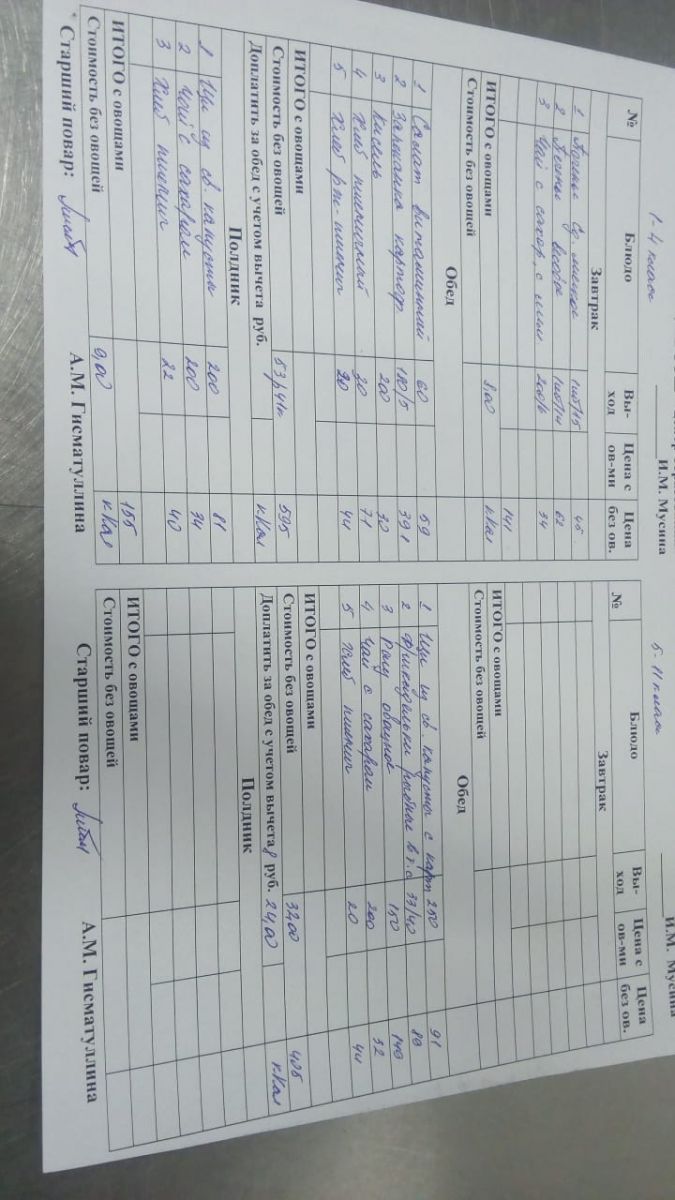 И.М. Мусина
1-4 классы
№ Блюдо Вы-ход Цена с ов-ми Цена без ов.
Завтрак
1 1шт/15 45
2 62
3 Чай с сахар. с 200/6 34
141
ИТОГО с овощами
Стоимость без овощей 9,00 кКал
Обед
1 Салат витаминный 60 59
2 Запеканка картоф. 180/5 391
3 Кисель 200 30
4 Хлеб пшеничный 30 71
5 Хлеб рж-пшенич 20 44
ИТОГО с овощами
Стоимость без овощей 595
Доплатить за обед с учетом вычета руб. кКал
Полдник
1 Щи из св. капусты 200 81
2 Чай с сахаром 200 34
3 Хлеб пшенич 22 40
ИТОГО с овощами 155
Стоимость без овощей 9,00 кКал
Старший повар: А.М. Гисматуллина
И.М. Мусина
5-11 классы
№ Блюдо Вы-ход Цена с ов-ми Цена без ов.
Завтрак
ИТОГО с овощами
Стоимость без овощей
Обед
1 Щи из св. капусты с карт 250 91
2 Фрикадельки рыбные в т.с 33/40 80
3 Рагу овощное 150 140
4 Чай с сахаром 200 32
5 Хлеб пшенич 20 44
ИТОГО с овощами
Стоимость без овощей 32,00 405
Доплатить за обед с учетом вычета 8 руб. 24,00 кКал
Полдник
ИТОГО с овощами
Стоимость без овощей
Старший повар: А.М. Гисматуллина